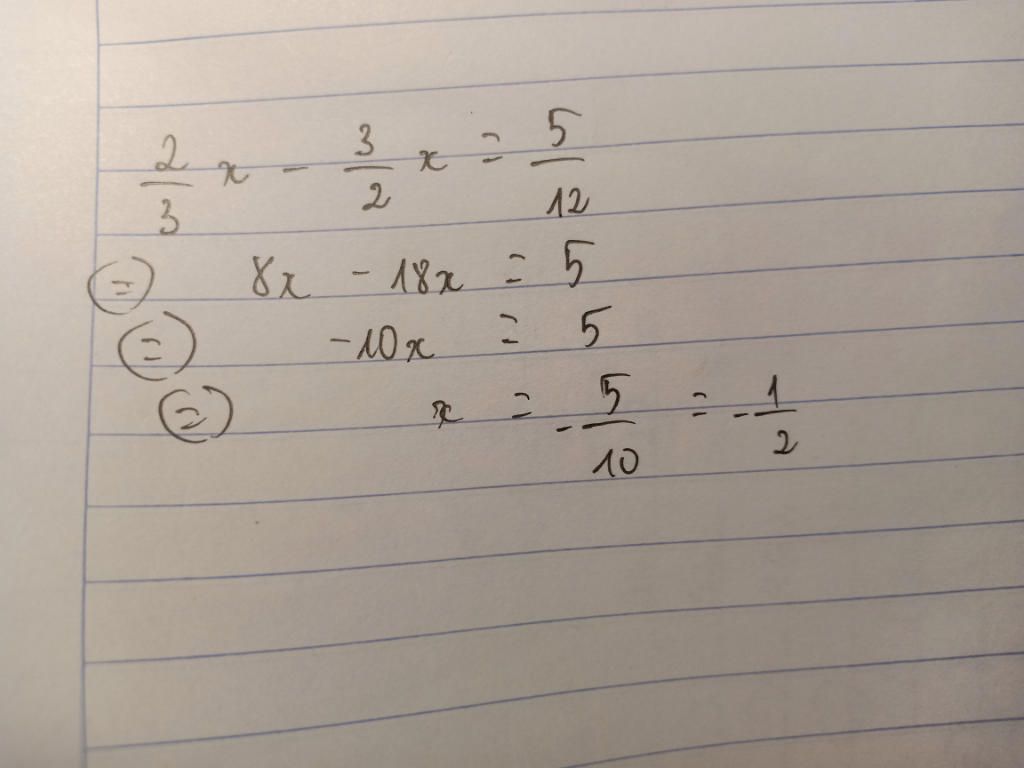 2/3 x - 3/2 x = 5/12
(=) 8x - 18x = 5
(=) -10x = 5
(=) x = -5/10 = -1/2